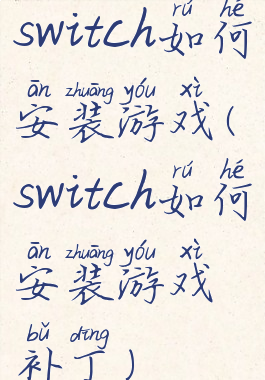 rú hé
switch如何
ān zhuāng yóu xì
安装游戏(
rú hé
switch如何
ān zhuāng yóu xì
安装游戏
bǔ dīng
补丁)